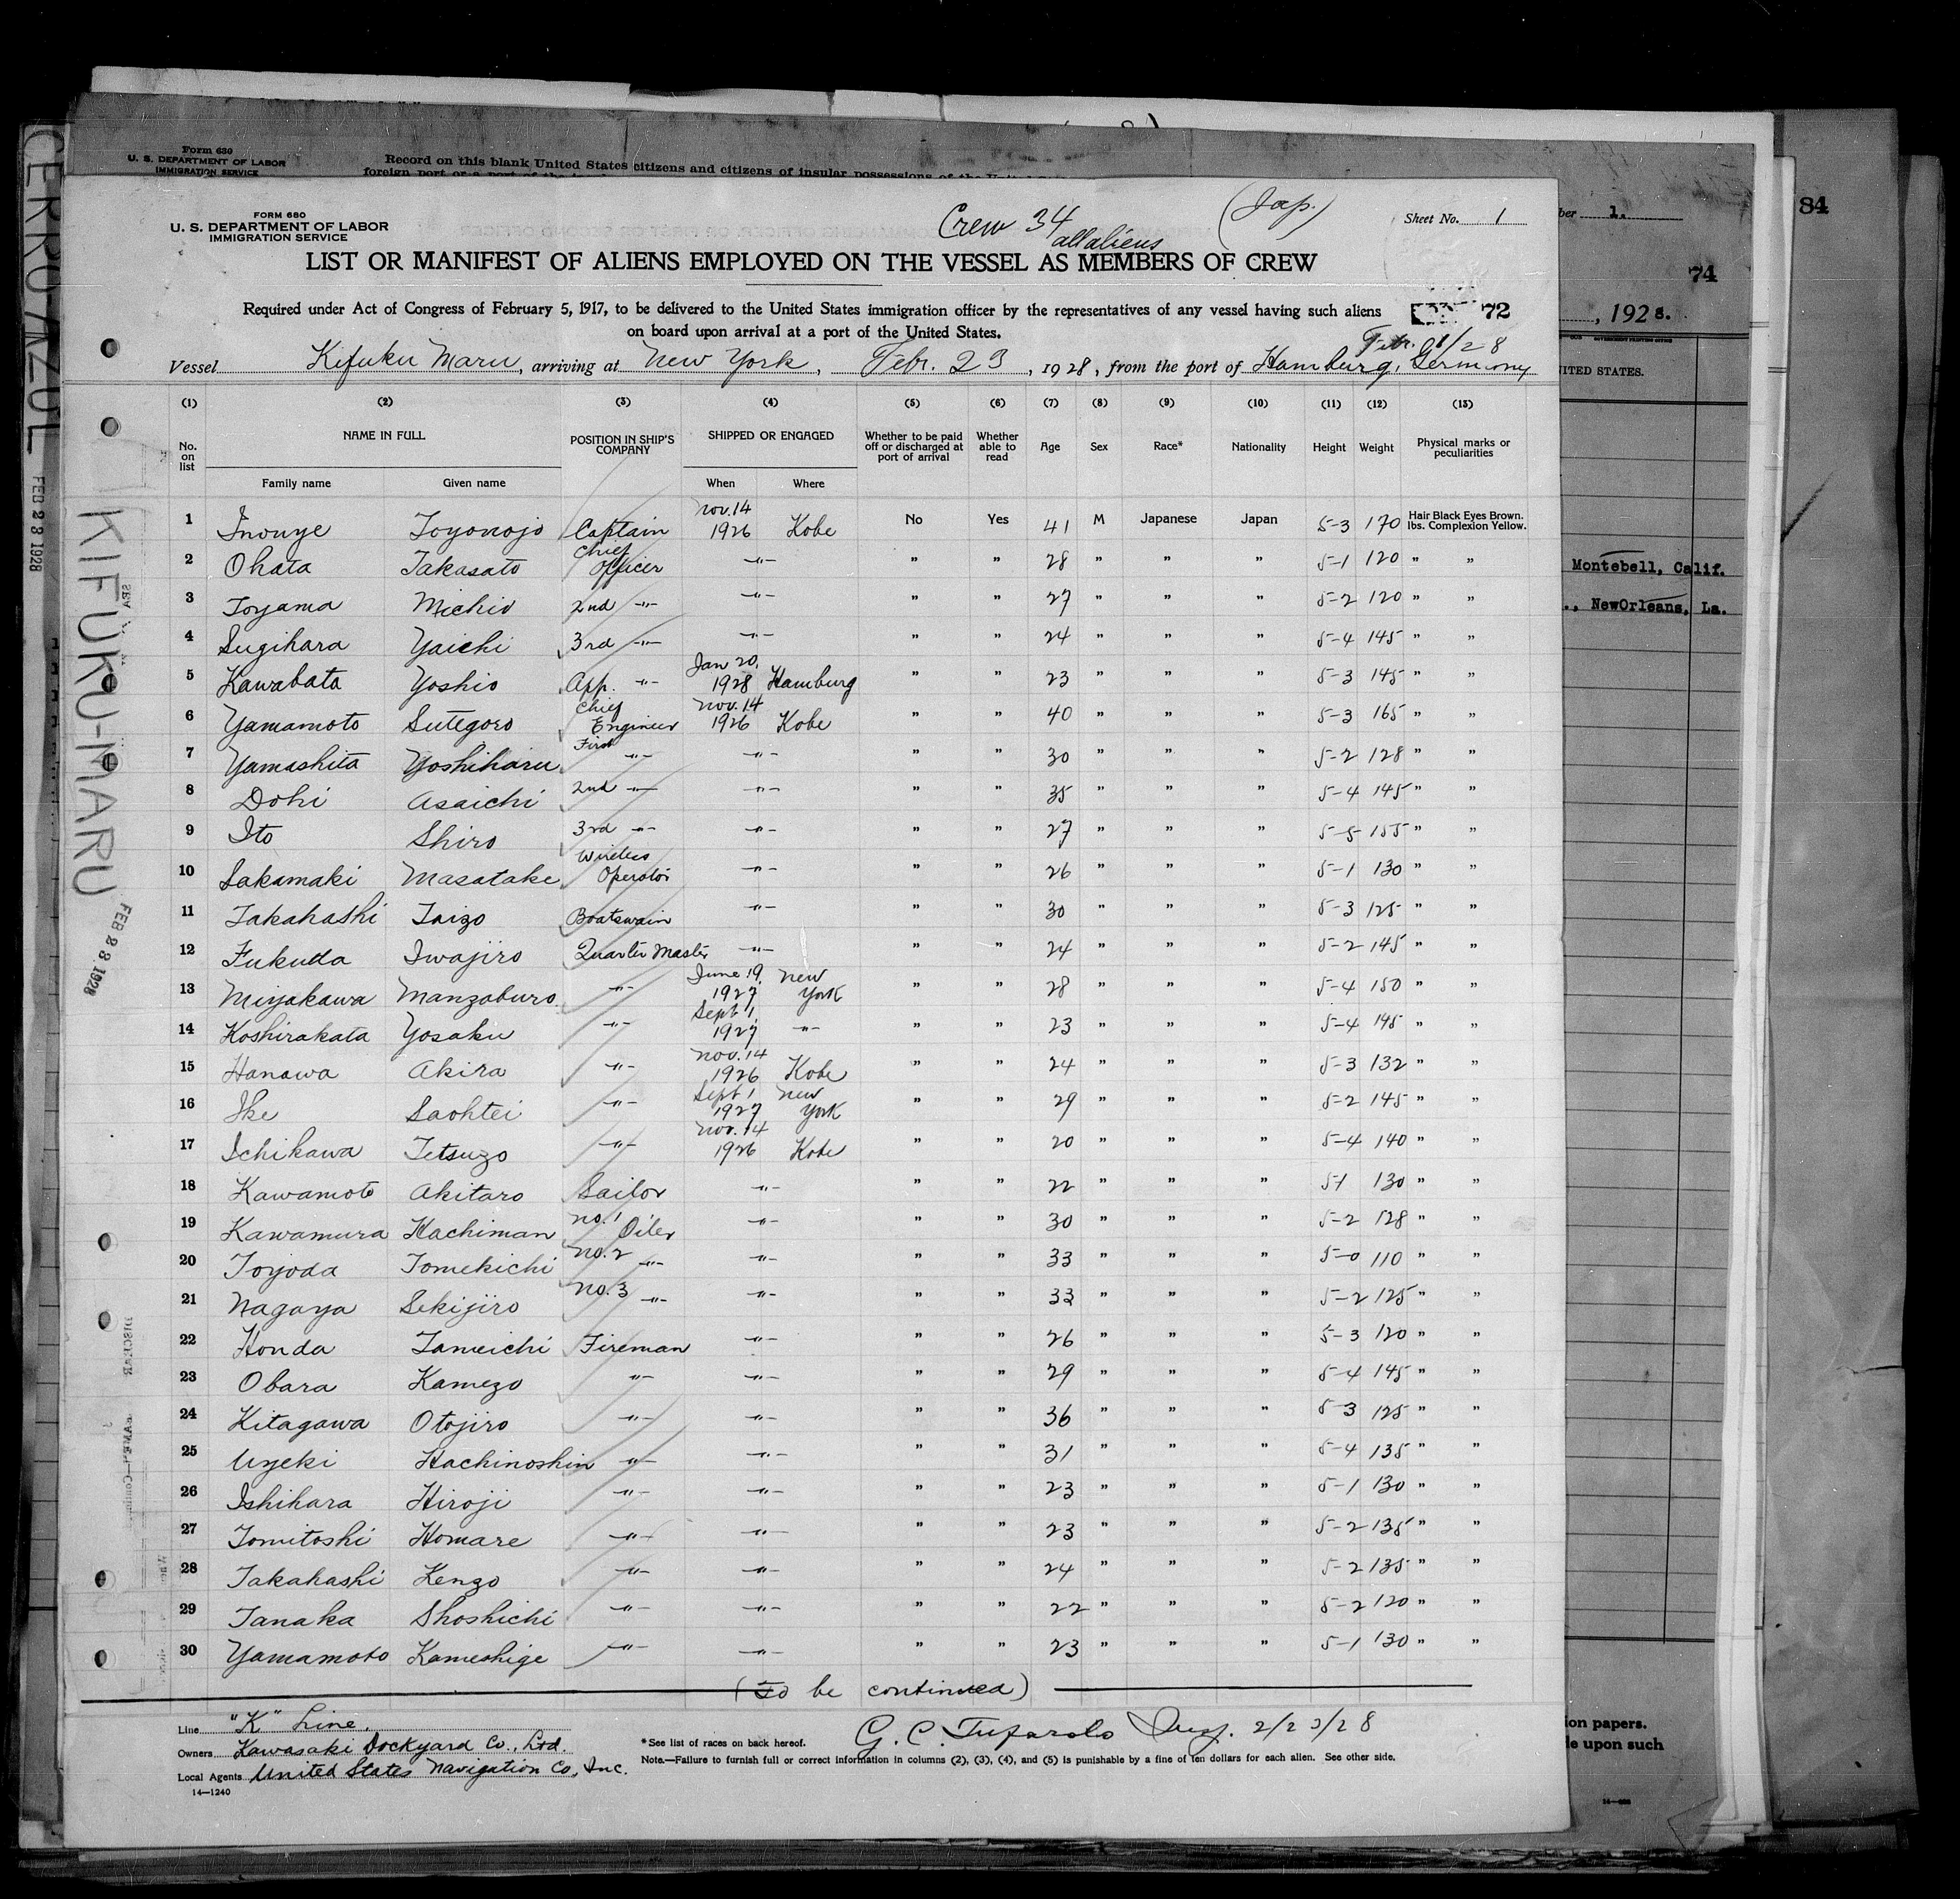 Form 680
U. S. DEPARTMENT OF LABOR
IMMIGRATION SERVICE
Record on this blank United States citizens and citizens of insular possessions of the
foreign port or a port of the
CERRO-AZUL FEB 23 1928
KIFUKU-MARU FEB 23 1928
FORM 680
U. S. DEPARTMENT OF LABOR
IMMIGRATION SERVICE
Crew 34 (Jap.)
all aliens
Sheet No. 1
LIST OR MANIFEST OF ALIENS EMPLOYED ON THE VESSEL AS MEMBERS OF CREW
Required under Act of Congress of February 5, 1917, to be delivered to the United States immigration officer by the representatives of any vessel having such aliens
on board upon arrival at a port of the United States.
72
Febr. 1/28
Vessel Kifuku Maru, arriving at New York, Febr. 23, 1928, from the port of Hamburg, Germany
(1) (2) (3) (4) (5) (6) (7) (8) (9) (10) (11) (12) (13)
No. on list NAME IN FULL POSITION IN SHIP'S COMPANY SHIPPED OR ENGAGED Whether to be paid off or discharged at port of arrival Whether able to read Age Sex Race* Nationality Height Weight Physical marks or peculiarities
Family name Given name When Where
1 Inouye Toyonojo Captain Nov. 14 1926 Kobe No Yes 41 M Japanese Japan 5-3 170 Hair Black Eyes Brown. lbs. Complexion Yellow.
2 Ohata Takasato Chief Officer -"- " " 28 " " " 5-1 120 " "
3 Toyama Michio 2nd -"- -"- " " 27 " " " 5-2 120 " "
4 Sugihara Yaichi 3rd -"- -"- " " 24 " " " 5-4 145 " "
5 Kawabata Yoshio App. -"- Jan 20, 1928 Hamburg " " 23 " " " 5-3 145 " "
6 Yamamoto Sutegoro Chief Engineer Nov. 14 1926 Kobe " " 40 " " " 5-3 165 " "
7 Yamashita Yoshiharu First -"- -"- " " 30 " " " 5-2 128 " "
8 Dohi Asaichi 2nd -"- -"- " " 35 " " " 5-4 145 " "
9 Ito Shiro 3rd -"- -"- " " 27 " " " 5-5 155 " "
10 Sakamaki Masatake Wireless Operator -"- " " 26 " " " 5-1 130 " "
11 Takahashi Taizo Boatswain -"- " " 30 " " " 5-3 125 " "
12 Fukuda Iwajiro Quarter Master -"- " " 24 " " " 5-2 145 " "
13 Miyakawa Manzaburo -"- June 19, 1927 New York " " 28 " " " 5-4 150 " "
14 Koshirakata Yosaku -"- Sept 1, 1927 -"- " " 23 " " " 5-4 145 " "
15 Hanawa Akira -"- Nov. 14 1926 Kobe " " 24 " " " 5-3 132 " "
16 Ike Saohtei -"- Sept 1 1927 New York " " 29 " " " 5-2 145 " "
17 Ichikawa Tetsuzo -"- Nov. 14 1926 Kobe " " 20 " " " 5-4 140 " "
18 Kawamoto Akitaro Sailor -"- " " 22 " " " 5-1 130 " "
19 Kawamura Hachiman No. 1 Oiler -"- " " 30 " " " 5-2 128 " "
20 Toyoda Tomekichi No. 2 -"- -"- " " 33 " " " 5-0 110 " "
21 Nagaya Sekijiro No. 3 -"- -"- " " 33 " " " 5-2 125 " "
22 Honda Tameichi Fireman -"- " " 26 " " " 5-3 120 " "
23 Obara Kamezo -"- -"- " " 29 " " " 5-4 145 " "
24 Kitagawa Otojiro -"- -"- " " 36 " " " 5-3 125 " "
25 Uyeki Hachinoshin -"- -"- " " 31 " " " 5-4 135 " "
26 Ishihara Hiroji -"- -"- " " 23 " " " 5-1 130 " "
27 Tomitoshi Homare -"- -"- " " 23 " " " 5-2 135 " "
28 Takahashi Kenzo -"- -"- " " 24 " " " 5-2 135 " "
29 Tanaka Shoshichi -"- -"- " " 22 " " " 5-2 120 " "
30 Yamamoto Kameshige -"- -"- " " 23 " " " 5-1 130 " "
(To be continued)
Line "K" Line.
Owners Kawasaki Dockyard Co., Ltd.
Local Agents United States Navigation Co., Inc.
14—1240
*See list of races on back hereof.
G. C. 2/23/28
Note.—Failure to furnish full or correct information in columns (2), (3), (4), and (5) is punishable by a fine of ten dollars for each alien. See other side.
ber 1.
84
74
, 1928.
ITED STATES.
Montebell, Calif.
., NewOrleans, La.
ion papers.
le upon such